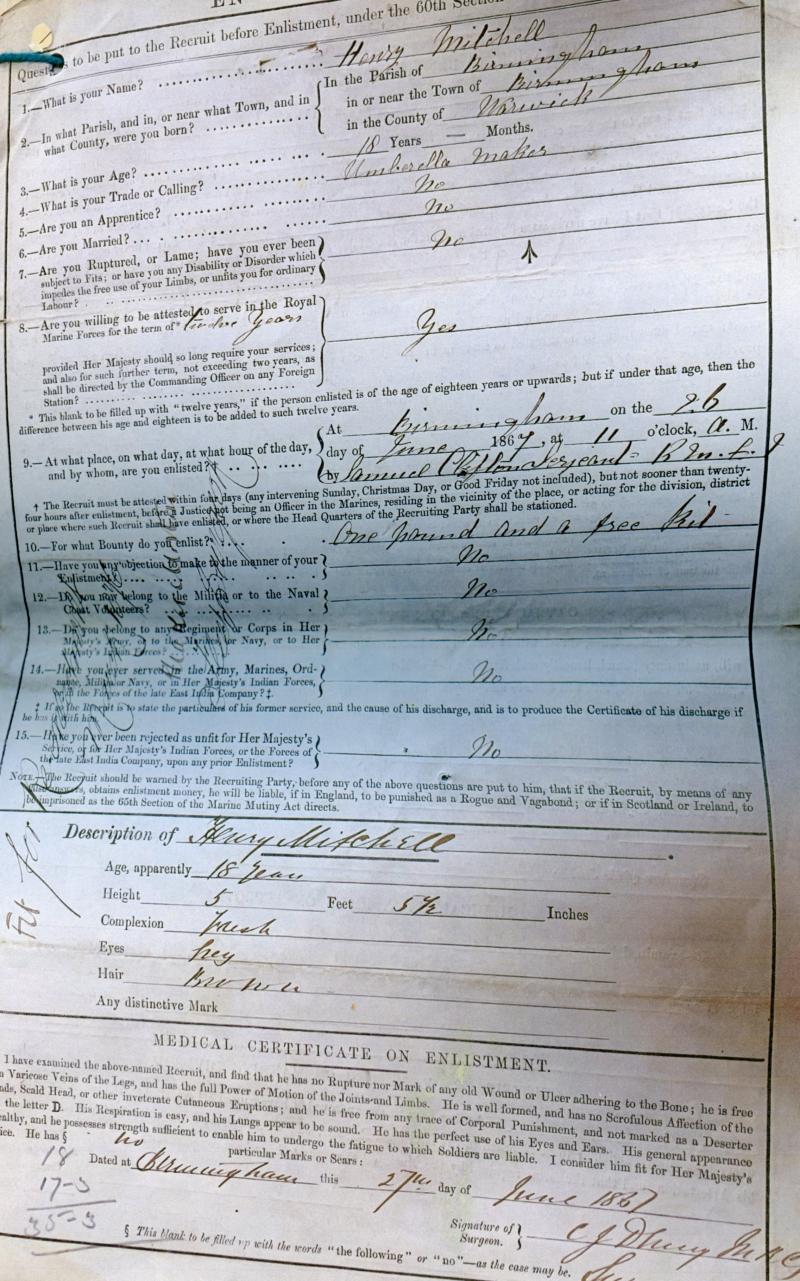 Questions to be put to the Recruit before Enlistment, under the 60th Section
1.—What is your Name? Henry Mitchell
2.—In what Parish, and in, or near what Town, and in what County, were you born?
In the Parish of Birmingham
in or near the Town of Birmingham
in the County of Warwick
3.—What is your Age? 18 Years — Months.
4.—What is your Trade or Calling? Umberella Maker
5.—Are you an Apprentice? No
6.—Are you Married? No
7.—Are you Ruptured, or Lame; have you ever been
subject to Fits; or have you any Disability or Disorder which
impedes the free use of your Limbs, or unfits you for ordinary
Labour? No
8.—Are you willing to be attested to serve in the Royal
Marine Forces for the term of* twelve years
provided Her Majesty should so long require your services;
and also for such further term, not exceeding two years, as
shall be directed by the Commanding Officer on any Foreign
Station? Yes
* This blank to be filled up with "twelve years," if the person enlisted is of the age of eighteen years or upwards; but if under that age, then the
difference between his age and eighteen is to be added to such twelve years.
9.—At what place, on what day, at what hour of the day,
and by whom, are you enlisted? †
At Birmingham on the 26
day of June 1867, at 11 o'clock, A. M.
by Samuel Clifton Serjeant R M L I
† The Recruit must be attested within four days (any intervening Sunday, Christmas Day, or Good Friday not included), but not sooner than twenty-
four hours after enlistment, before a Justice not being an Officer in the Marines, residing in the vicinity of the place, or acting for the division, district
or place where such Recruit shall have enlisted, or where the Head Quarters of the Recruiting Party shall be stationed.
10.—For what Bounty do you enlist? One pound and a free kit
11.—Have you any objection to make to the manner of your
Enlistment? No
12.—Do you now belong to the Militia or to the Naval
Coast Volunteers? No
13.—Do you belong to any Regiment or Corps in Her
Majesty's Army, or to the Marines, or Navy, or to Her
Majesty's Indian Forces? No
14.—Have you ever served in the Army, Marines, Ord-
nance, Militia or Navy, or in Her Majesty's Indian Forces,
or in the Forces of the late East India Company? ‡ No
‡ If so the Recruit is to state the particulars of his former service, and the cause of his discharge, and is to produce the Certificate of his discharge if
he has it with him.
15.—Have you ever been rejected as unfit for Her Majesty's
Service, or for Her Majesty's Indian Forces, or the Forces of
the late East India Company, upon any prior Enlistment? No
NOTE.—The Recruit should be warned by the Recruiting Party, before any of the above questions are put to him, that if the Recruit, by means of any
false answers, obtains enlistment money, he will be liable, if in England, to be punished as a Rogue and Vagabond; or if in Scotland or Ireland, to
be imprisoned as the 65th Section of the Marine Mutiny Act directs.
Fit for
Description of Henry Mitchell
Age, apparently 18 years
Height 5 Feet 5½ Inches
Complexion Fresh
Eyes Grey
Hair Brown
Any distinctive Mark
MEDICAL CERTIFICATE ON ENLISTMENT.
I have examined the above-named Recruit, and find that he has no Rupture nor Mark of any old Wound or Ulcer adhering to the Bone; he is free
Varicose Veins of the Legs, and has the full Power of Motion of the Joints and Limbs. He is well formed, and has no Scrofulous Affection of the
Scald Head, or other inveterate Cutaneous Eruptions; and he is free from any trace of Corporal Punishment, and not marked as a Deserter
the letter D. His Respiration is easy, and his Lungs appear to be sound. He has the perfect use of his Eyes and Ears. His general appearance
and he possesses strength sufficient to enable him to undergo the fatigue to which Soldiers are liable. I consider him fit for Her Majesty's
He has § no particular Marks or Scars:
Dated at Birmingham this 27th day of June 1867
18
17-3
35-3
Signature of Surgeon.
§ This blank to be filled up with the words "the following" or "no"—as the case may be.